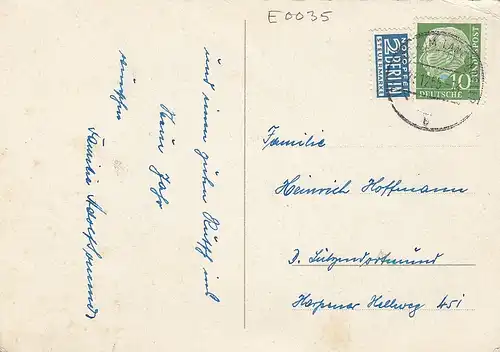 E0035
NOTOPFER
2 BERLIN
STEUERMARKE
DEUTSCHE BUNDESPOST
10
b
und einen guten Rutsch ins
Neue Jahr
wünschen
Familie
Familie
Heinrich Hoffmann
Lütgendortmund
Harpener Hellweg 451